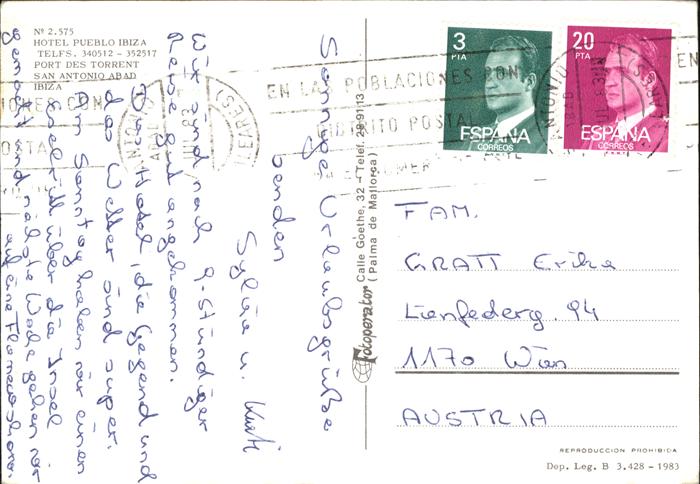 Nº 2.575
HOTEL PUEBLO IBIZA
TELFS. 340512 - 352517
PORT DES TORRENT
SAN ANTONIO ABAD
IBIZA
Sonnige Urlaubsgrüße
senden
Sylvia u. Kurti
Wir sind nach 9-stündiger
Reise gut angekommen.
Das Hotel, die Gegend und
das Wetter sind super.
Am Sonntag haben wir einen
über die Insel
gemacht und nächste Woche gehen wir
auf eine Flamencoshow.
Fotoperator
Calle Goethe, 32 - Telef. 28 91 13
(Palma de Mallorca)
3
PTA
ESPAÑA
CORREOS
20
PTA
ESPAÑA
CORREOS
EN LAS POBLACIONES CON
DISTRITO POSTAL
FAM.
GRATT Erika
Lienfelderg. 94
1170 Wien
AUSTRIA
REPRODUCCION PROHIBIDA
Dep. Leg. B 3.428 - 1983